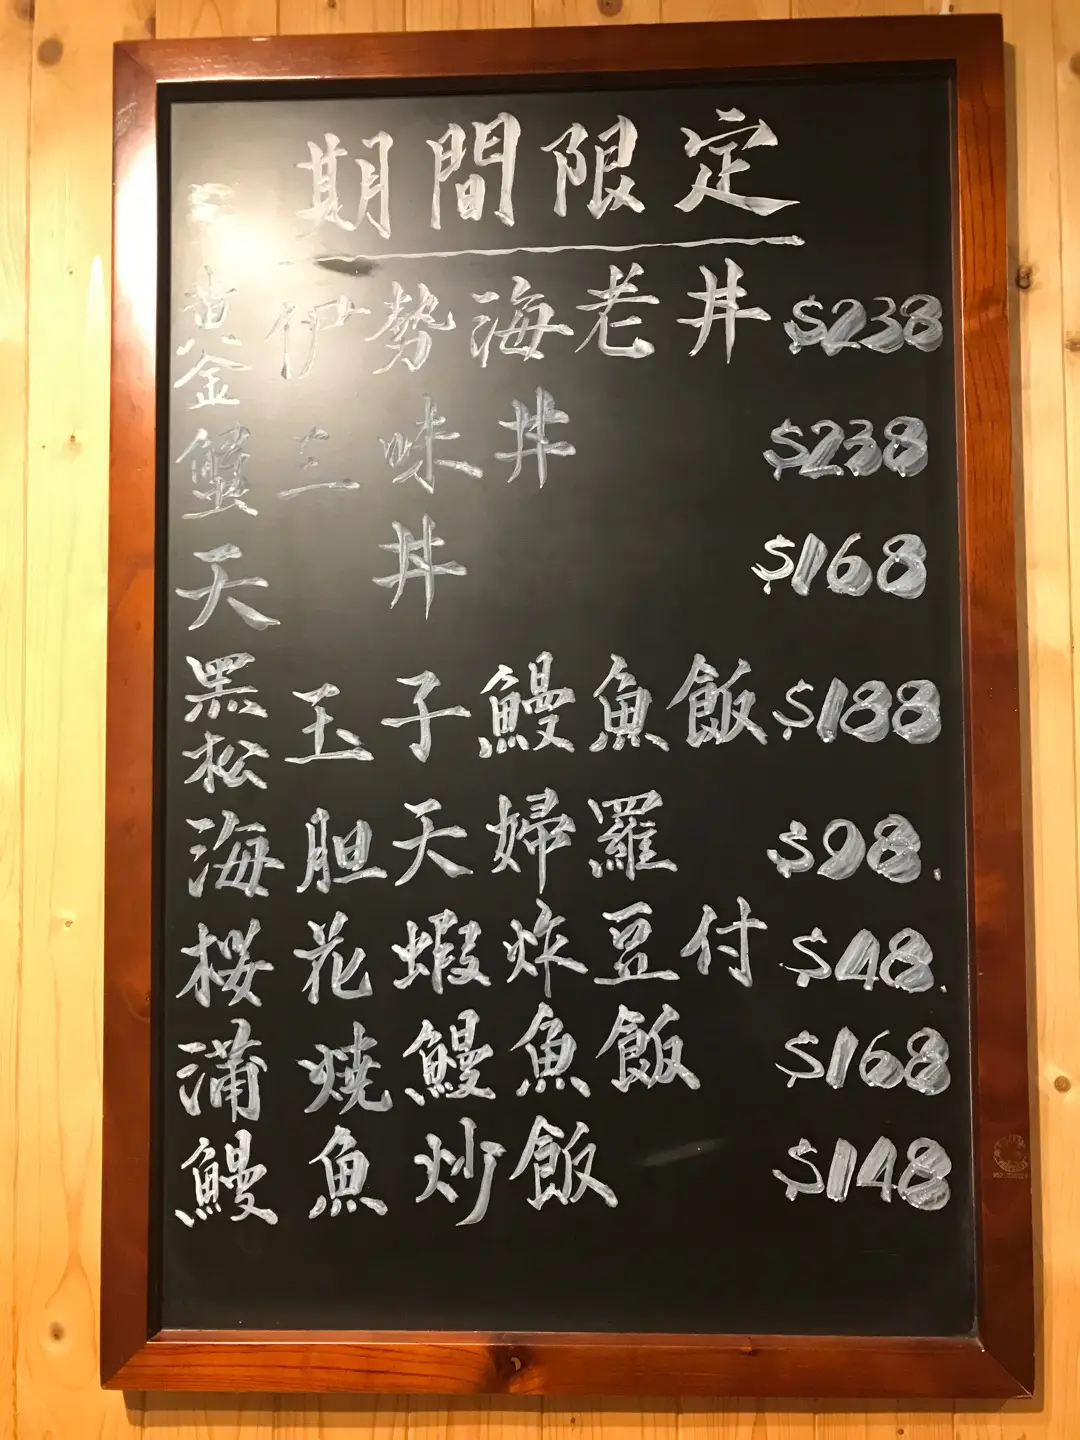 期間限定
黃金伊勢海老丼 $238
蟹三味丼 $238
天丼 $168
黑松玉子鰻魚飯 $188
海胆天婦羅 $98.
桜花蝦炸豆付 $48.
蒲燒鰻魚飯 $168
鰻魚炒飯 $148